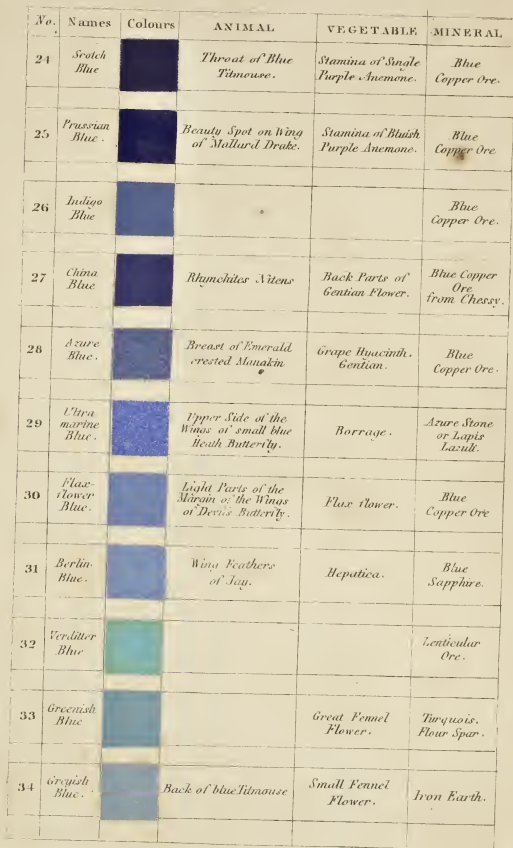 No. Names Colours ANIMAL VEGETABLE MINERAL
24 Scotch Blue Throat of Blue Titmouse. Stamina of Single Purple Anemone. Blue Copper Ore.
25 Prussian Blue. Beauty Spot on Wing of Mallard Drake. Stamina of Bluish Purple Anemone. Blue Copper Ore
26 Indigo Blue Blue Copper Ore.
27 China Blue Rhynchites Nitens Back Parts of Gentian Flower. Blue Copper Ore from Chessy.
28 Azure Blue. Breast of Emerald crested Manakin Grape Hyacinth. Gentian. Blue Copper Ore.
29 Ultra marine Blue. Upper Side of the Wings of small blue Heath Butterfly. Borrage. Azure Stone or Lapis Lazuli.
30 Flax-flower Blue. Light Parts of the Margin of the Wings of Devil's Butterfly. Flax flower. Blue Copper Ore
31 Berlin Blue. Wing Feathers of Jay. Hepatica. Blue Sapphire.
32 Verditter Blue Lenticular Ore.
33 Greenish Blue Great Fennel Flower. Turquois. Flour Spar.
34 Greyish Blue. Back of blue Titmouse Small Fennel Flower. Iron Earth.